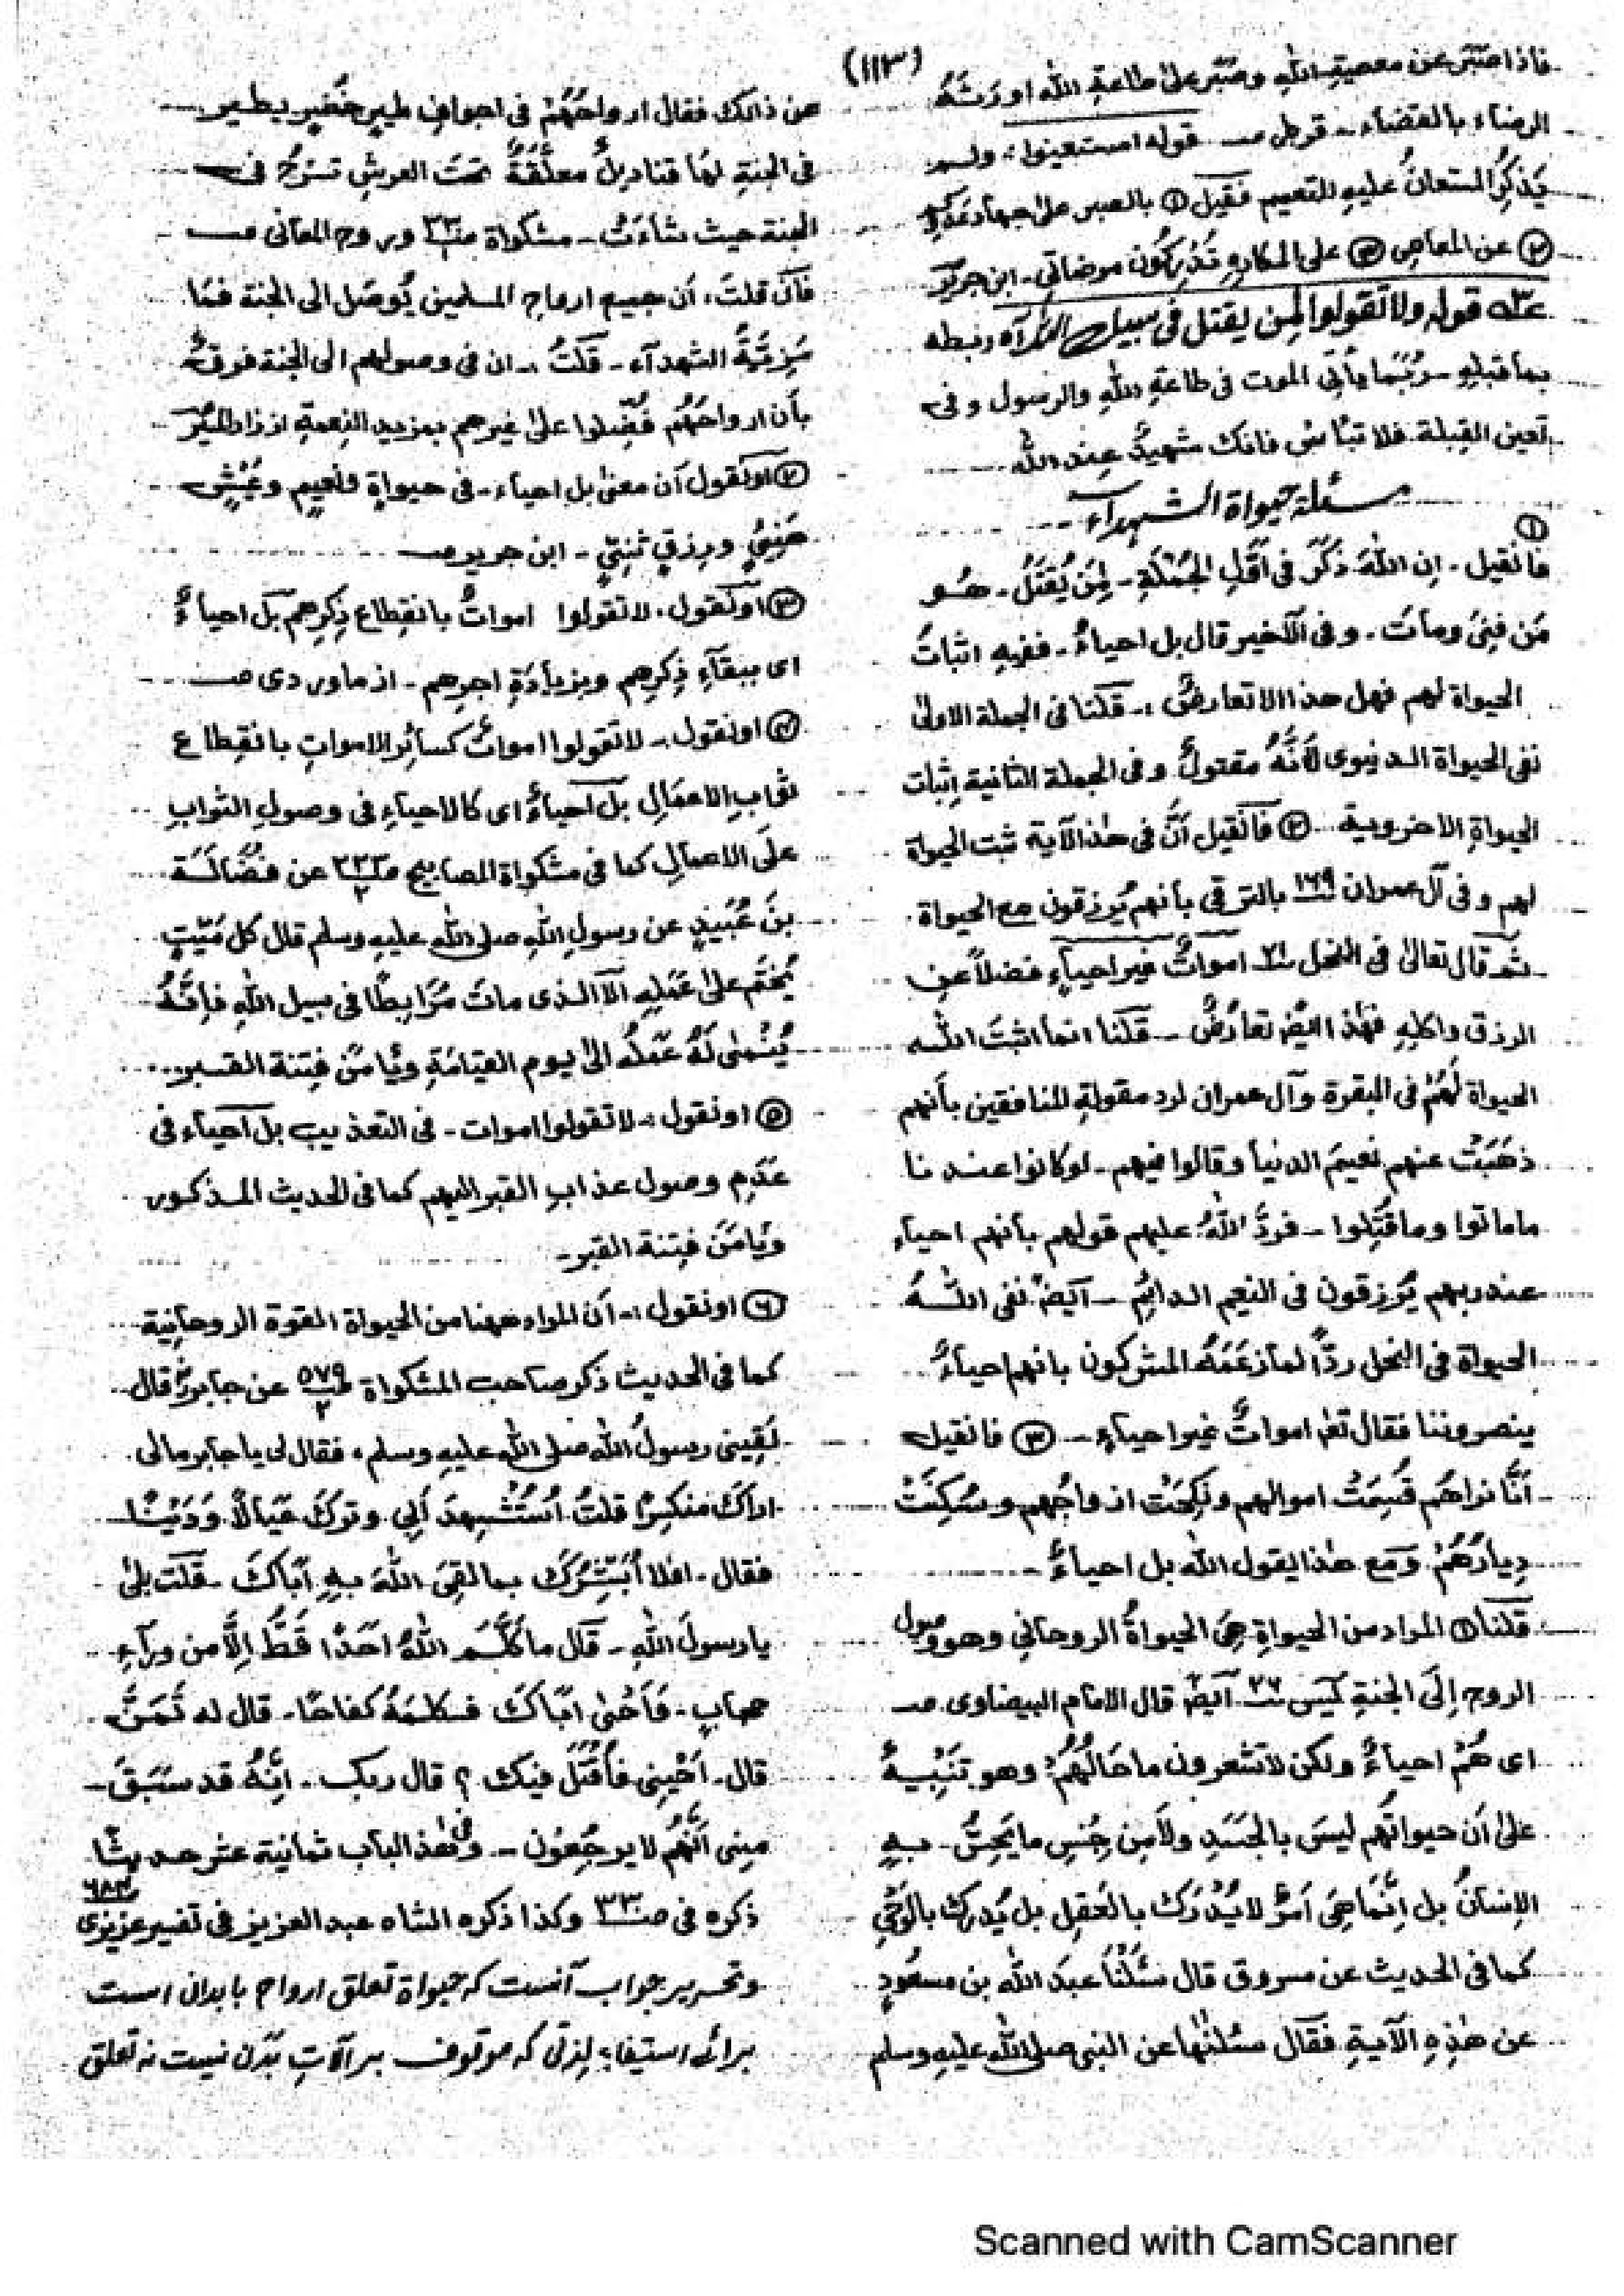 (١١٣)
فاذا صَبَر عن معصيةِ اللهِ وصَبَر على طاعةِ الله اورَثَهُ
الرضاء بالقضاء۔ قرطبی صـ قوله استعينوا؛ ولم
يَذكُرِ المستعانُ عليهِ للتعميم فقيل ① بالصبر على جهادِ عَدُوِّ
② عن المعاصِي ③ على المكارِهِ تُدْرِكُون مرضاتی۔ ابن جرير
قوله ولا تقولوا لمن يقتل فی سبيل الله الآه ربطه
بما قبلهِ۔ رُبَّما يأتِی الموت فی طاعةِ اللهِ والرسول وفی
تعين القِبلة۔ فلا تبأس فانك شهيدٌ عِند الله
مسئلة حيواة الشهداء
① فانقيل۔ ان اللهَ ذكَرَ فی اَوَّلِ الجُملَةِ۔ لِمَن يُقتَلُ۔ هُو
مَن فنِیَ وماتَ۔ وفی الآخير قال بل احياءٌ۔ ففيهِ اثباتُ
الحيواة لهم فهل هذا الا تعارضٌ :۔ قلنا فی الجملة الاولٰی
نفی الحيواة الدنيوی لأنَّهُ مقتولٌ وفی الجملة الثانية اِثبات
الحيواةِ الاخروية ② فانقيل اَنَّ فی هٰذ الآية ثبت الحيواة
لهم وفی آل عمران ١٦٩ بالترقی بأنهم يُرزقون مع الحيواة
ثم قال تعالیٰ فی النحل ٢١ امواتٌ غير احياءٍ فضلاً عن
الرزق واكلِهِ فهٰذ ايضٌ تعارُضٌ۔ قلنا انما اثبتَ الله
الحيواة لَهُمْ فی البقرةِ وآل عمران لرد مقولةِ المنافقين بأنهم
ذهَبَتْ عنهم نعيمَ الدنيا وقالوا فيهم۔ لو كانوا عند نا
ما ماتوا وما قُتِلوا۔ فردَّ اللهُ عليهم قولهم بأنهم احياءٌ
عند ربهم يُرزقون فی النعيم الدائِمِ۔ ايضٌ نفی اللهُ
الحيواة فی النحل ردًّا لما زعَمَهُ المشركون بانهم احياءٌ
ينصروننا فقال تعٰ امواتٌ غير احياءٍ۔ ③ فانقيل
اَنَّا نراهم قُسِمَتْ اموالهم ونُكِحَتْ ازواجُهم وسُكِنَتْ
دِيارُهُمْ۔ ومع هٰذا يقول الله بل احياءٌ۔
قلنا ① المراد من الحيواةِ هِیَ الحيواةُ الروحانِي وهو وصول
الروح اِلَی الجنةِ كيٰس ٢٦ ايضٌ قال الامام البيضاوی صـ
ای هُمْ احياءٌ ولكن لا تشعرون ما حَالُهُمْ؛ وهو تنبِيهٌ
علیٰ اَن حيواتُهم ليسَ بالجَسَدِ ولا من جِنسِ ما يَحِسُّ۔ بهِ
الاِنسانُ بل اِنَّما هِیَ اَمرٌ لا يُدْرَك بالعَقلِ بل يُدرك بالوَحْیِ
كما فی الحديث عن مسروق قال سئلنا عبدَ الله بن مسعُودٍ
عن هٰذِهِ الآيةِ فقال سئلنٰها عن النبی صلی الله عليهِ وسلم
عن ذالك فقال ارواحُهُمْ فی اجوافِ طيرٍ خُضرٍ يطير
فی الجنةِ لها قناديلُ معلَّقَةٌ تحتَ العرشِ تسْرَحُ فی
الجنة حيث شاءَتْ۔ مشكواة وروح المعانی صـ
فان قلتَ، اَن جميع ارواح المسلمين يُوصَل الی الجنة فما
مَزِيَّةُ الشهدآء۔ قلتُ :۔ ان فی وصولهم الی الجنة فوقٌ
بأن ارواحَهُم فُضِّلوا علیٰ غيرهم بمزيد النعمةِ از زاد المسير
② اونقول اَن معنیٰ بل احياء۔ فی حيواةٍ ونعيمٍ وعَيْشٍ
هَنِيٍّ ورِزقٍ ثنِيٍّ۔ ابن جرير صـ
③ اونقول، لا تقولوا امواتٌ بانقِطاع ذِكرِهم بَل احياءٌ
ای ببقآءِ ذِكرِهم وبزيادَةِ اجرهم۔ از ماوردی صـ
④ اونقول۔ لا تقولوا امواتٌ كسائرِ الامواتِ بانقِطاع
ثوابِ الاعمَالِ بل احياءٌ ای كالاحياءِ فی وصولِ الثوابِ
علَی الاعمالِ كما فی مشكواة المصابيح عن فضَالَة
بنَ عُبَيدٍ عن رسول اللهِ صلی الله عليهِ وسلم قال كل ميّتٍ
يُختَم علیٰ عَمَلِهِ الا الذی ماتَ مُرَابِطًا فی سبيل اللهِ فاِنَّهُ
يُنْمٰی لَهُ عَمَلُهُ الیٰ يوم القيامَةِ ويُأمَن فِتنة القبر
⑤ اونقول :۔ لا تقولوا اموات۔ فی التعذيب بل احياء فی
عدَمِ وصول عذاب القبر اليهم كما فی الحديث المذكور
ويُأمَن فِتنة القبر۔
⑥ اونقول :۔ اَن المراد ههنا من الحيواة القوة الروحانية
كما فی الحديث ذكر صاحب المشكواة ٥٧٩/٢ عن جابرؓ قال
لقِينی رسولُ الله صلی الله عليهِ وسلم، فقال لی يا جابر مالی
اراكَ منكسِرًا قلتُ اُسْتُشْهِدَ اَبِی۔ وتركَ عَيَالاً وَدَيْنًا
فقال۔ افلا اُبَشِّرُكَ بما لقِیَ اللهَ بهِ اَباكَ۔ قلت بلیٰ
يا رسولَ اللهِ۔ قال ما كلَّم اللهُ احَدًا قَطُّ اِلَّا من ورآءِ
حجابٍ۔ فَاَحْیٰ ابَاكَ فكلمَهُ كفاحًا۔ قال له تَمَنَّ
قال۔ اَحْيِنِی فاُقتَلَ فيك ؟ قال ربك۔ اِنَّهُ قد سَبَقَ۔
مِنی اَنَّهُم لا يرجِعُون۔ وفی هٰذ الباب ثمانية عشر حديثًا
ذكره فی صـ٣٣ وكذا ذكره الشاه عبد العزيز فی تفسير عزيزی
وتحرير جواب آنست كہ حيواة تعلق ارواح با بدان است
برائے استيفاء لِذتی كہ موقوف بر آلاتِ بَدَن نيست نہ تعلق
Scanned with CamScanner